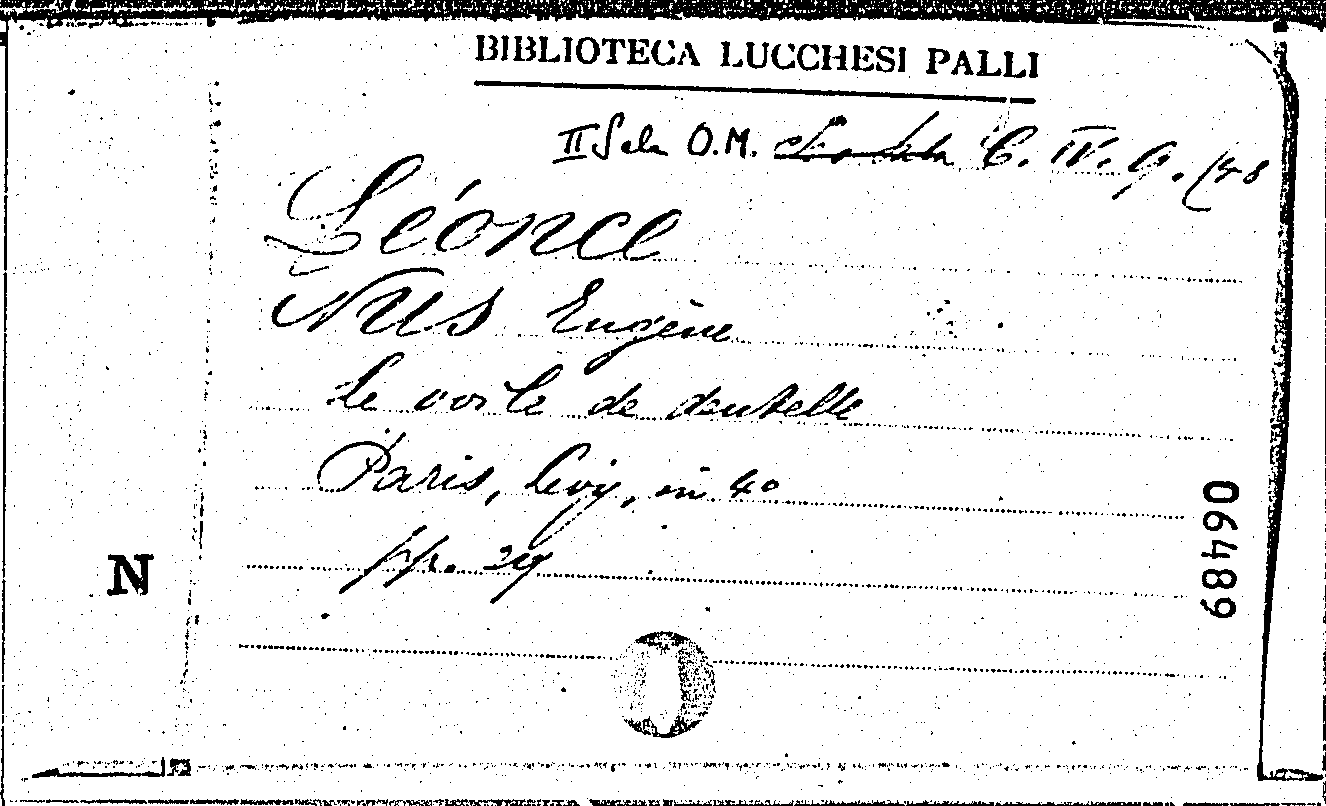 BIBLIOTECA LUCCHESI PALLI
II Sala O.M. C. IV. 9. (48
Léonce
Nus Eugène
Le voile de dentelle
Paris, Levy, in 4º
pp. 29
N
06489